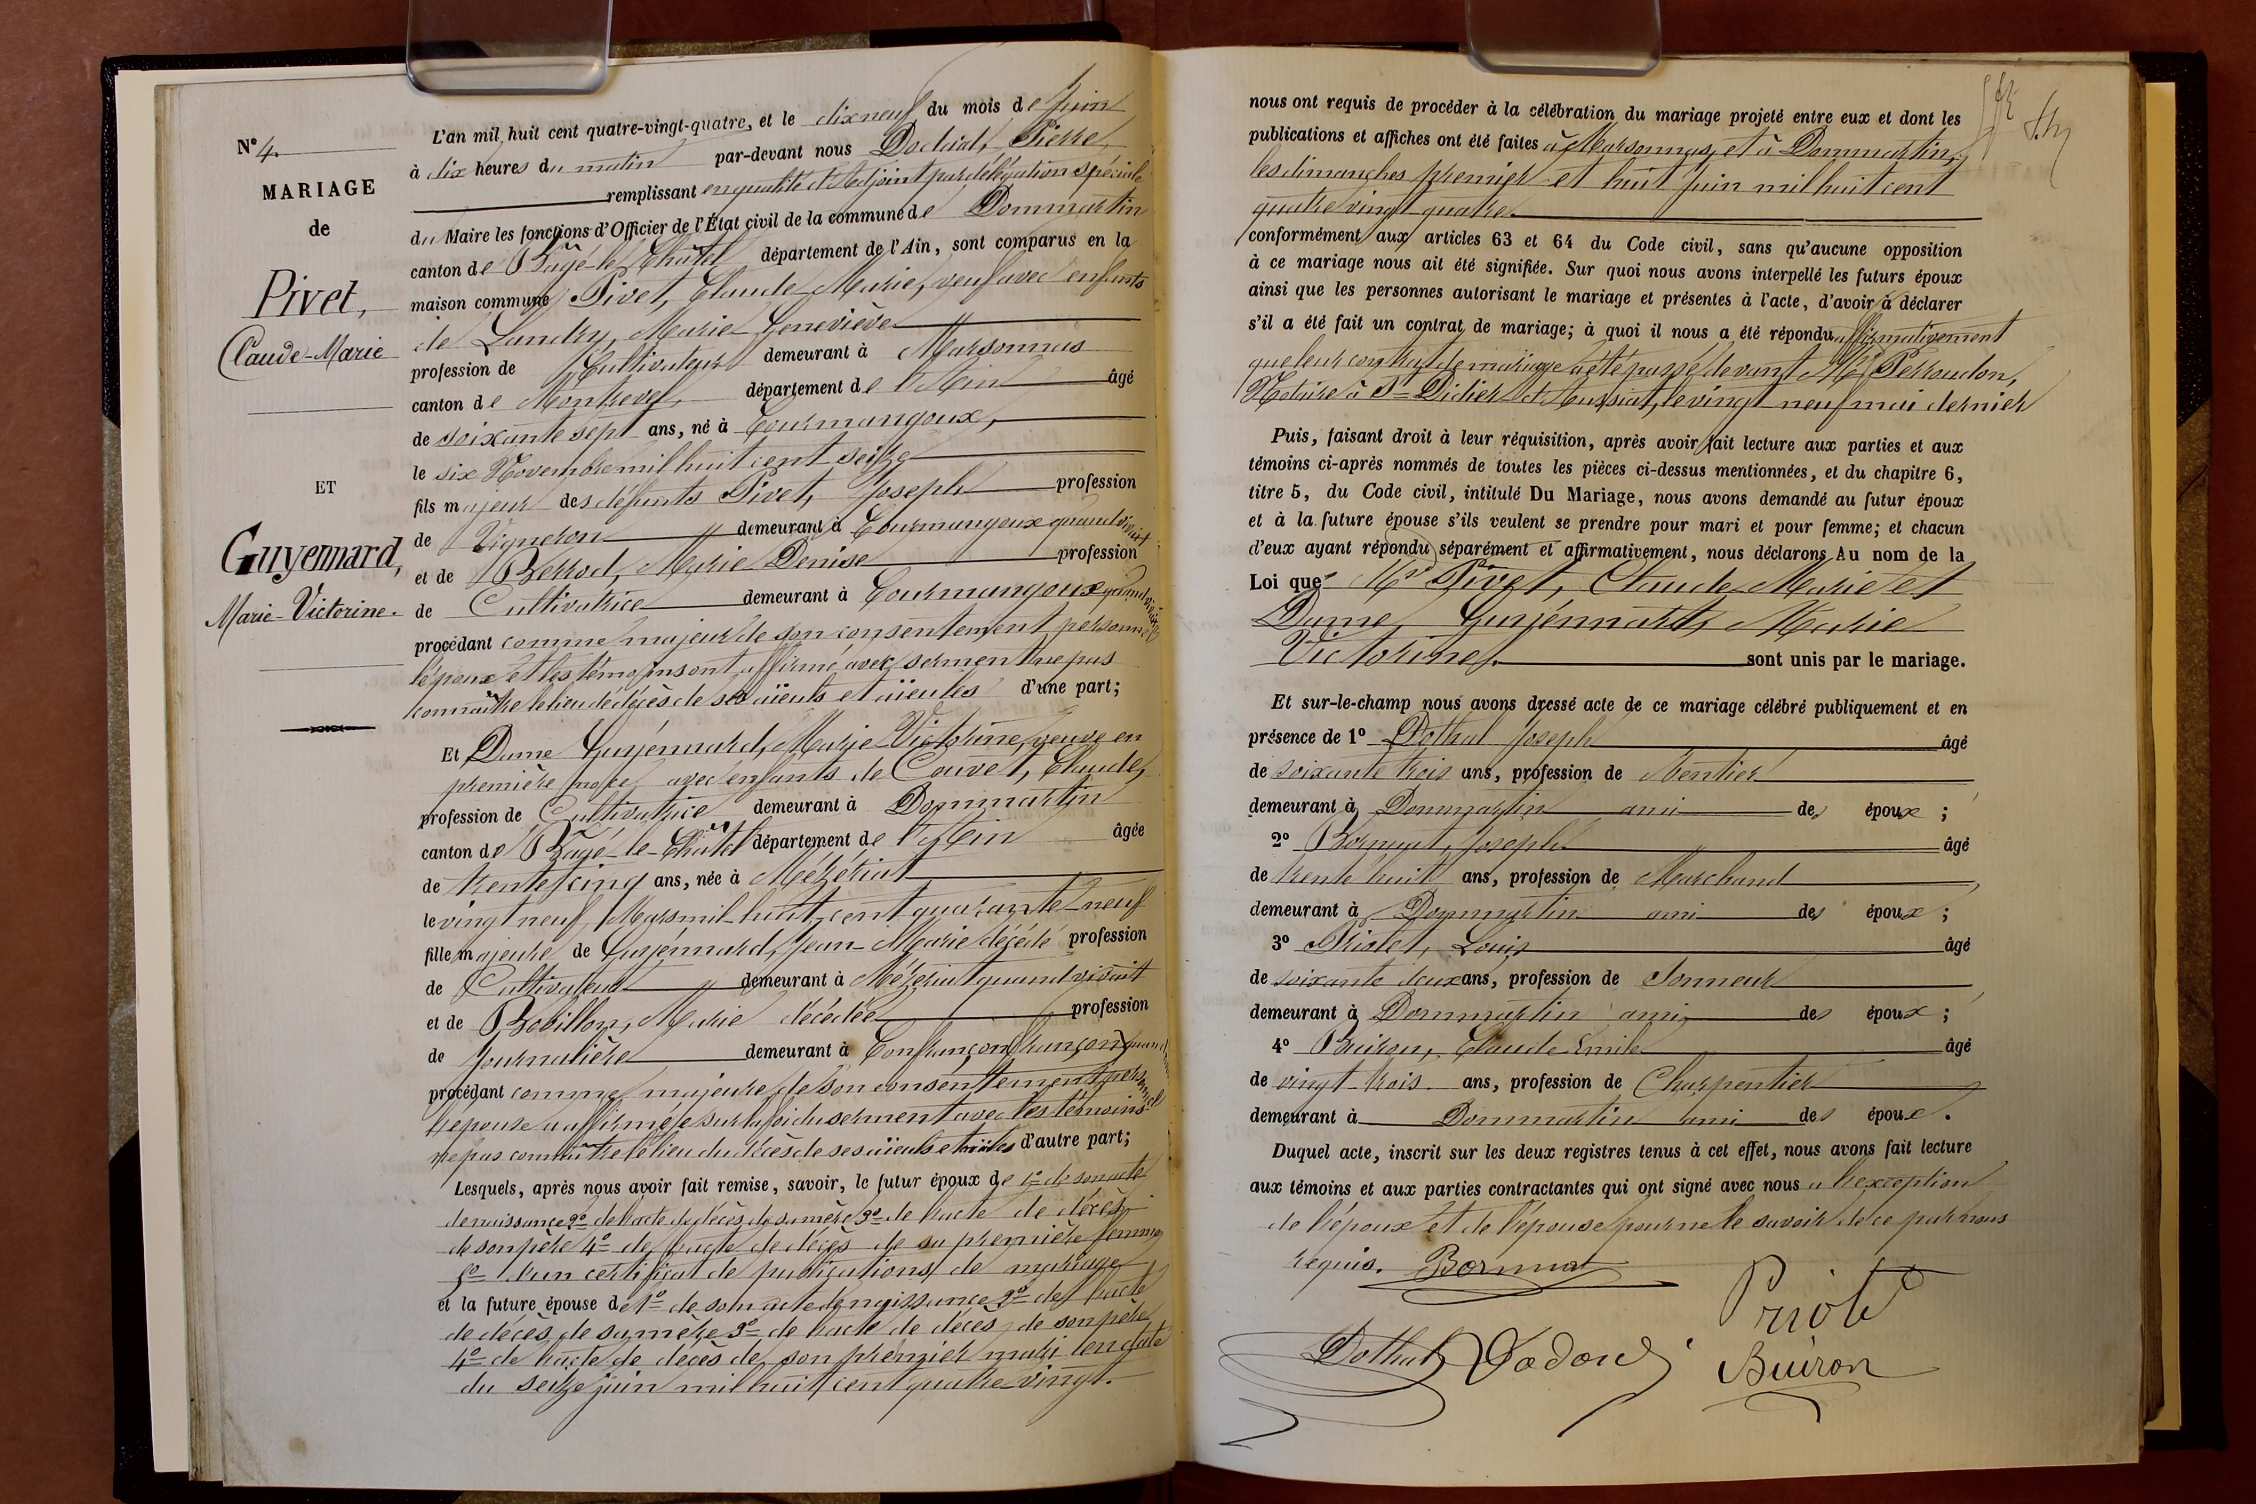 N° 4.
MARIAGE
de
Pivet,
Claude-Marie
ET
Guyennard,
Marie-Victorine.
L'an mil huit cent quatre-vingt-quatre, et le dix neuf du mois de Juin
à dix heures du matin par-devant nous Pierre,
remplissant en qualité d'Adjoint par délégation spéciale
du Maire les fonctions d'Officier de l'État civil de la commune de Dommartin
canton de Bâgé-le-Châtel département de l'Ain, sont comparus en la
maison commune Pivet, Claude-Marie, veuf avec enfants
de Landry, Marie Geneviève
profession de Cultivateur demeurant à Marsonnas
canton de Montrevel, département de l'Ain âgé
de soixante sept ans, né à Courmangoux,
le six Novembre mil huit cent seize
fils majeur des défunts Pivet, Joseph profession
de Vigneron demeurant à Courmangoux quand vivait
et de Berrod, Marie Denise profession
de Cultivatrice demeurant à Courmangoux quand vivait
procédant comme majeur de son consentement personnel
l'époux et les témoins ont affirmé avec serment ne pas
connaître le lieu de décès de ses aïeuls et aïeules d'une part;
Et Dame Guyénnard, Marie-Victorine, veuve en
première noce avec enfants de Couvet, Claude,
profession de Cultivatrice demeurant à Dommartin
canton de Bâgé-le-Châtel département de l'Ain âgée
de trente cinq ans, née à Mézériat
le vingt neuf Mars mil huit cent quarante neuf
fille majeure de Guyénnard, Jean-Marie décédé profession
de Cultivateur demeurant à Mézériat quand vivait
et de Bobillon, Marie décédée profession
de journalière demeurant à Confrançon quand
procédant comme majeure de son consentement personnel
l'épouse a affirmé sur la foi du serment avec les témoins
ne pas connaître le lieu du décès de ses aïeuls et aïeules d'autre part;
Lesquels, après nous avoir fait remise, savoir, le futur époux de 1° de son acte
de naissance 2° de l'acte de décès de sa mère 3° de l'acte de décès
de son père 4° de l'acte de décès de sa première femme
5° d'un certificat de publications de mariage
et la future épouse de 1° de son acte de naissance 2° de l'acte
de décès de sa mère 3° de l'acte de décès de son père
4° de l'acte de décès de son premier mari en date
du seize juin mil huit cent quatre-vingt.
nous ont requis de procéder à la célébration du mariage projeté entre eux et dont les
publications et affiches ont été faites à Marsonnas, et à Dommartin,
les dimanches premier et huit Juin mil huit cent
quatre vingt-quatre.
conformément aux articles 63 et 64 du Code civil, sans qu'aucune opposition
à ce mariage nous ait été signifiée. Sur quoi nous avons interpellé les futurs époux
ainsi que les personnes autorisant le mariage et présentes à l'acte, d'avoir à déclarer
s'il a été fait un contrat de mariage; à quoi il nous a été répondu affirmativement
que leur contrat de mariage a été passé devant Me Perroudon,
Notaire à St Didier d'Aussiat, le vingt neuf mai dernier
Puis, faisant droit à leur réquisition, après avoir fait lecture aux parties et aux
témoins ci-après nommés de toutes les pièces ci-dessus mentionnées, et du chapitre 6,
titre 5, du Code civil, intitulé Du Mariage, nous avons demandé au futur époux
et à la future épouse s'ils veulent se prendre pour mari et pour femme; et chacun
d'eux ayant répondu séparément et affirmativement, nous déclarons Au nom de la
Loi que Mr Pivet, Claude-Marie et
Dame Guyénnard, Marie
Victorine, sont unis par le mariage.
Et sur-le-champ nous avons dressé acte de ce mariage célébré publiquement et en
présence de 1° Dothal Joseph âgé
de soixante trois ans, profession de Rentier
demeurant à Dommartin ami des époux;
2° Bornuat, Joseph âgé
de trente huit ans, profession de Marchand
demeurant à Dommartin ami des époux;
3° Priolet, Louis âgé
de soixante deux ans, profession de Sonneur
demeurant à Dommartin ami des époux;
4° Buiron, Claude Emile âgé
de vingt-trois ans, profession de Charpentier
demeurant à Dommartin ami des époux.
Duquel acte, inscrit sur les deux registres tenus à cet effet, nous avons fait lecture
aux témoins et aux parties contractantes qui ont signé avec nous à l'exception
de l'époux et de l'épouse pour ne le savoir de ce par nous
requis. Bornuat
Dothal Buiron